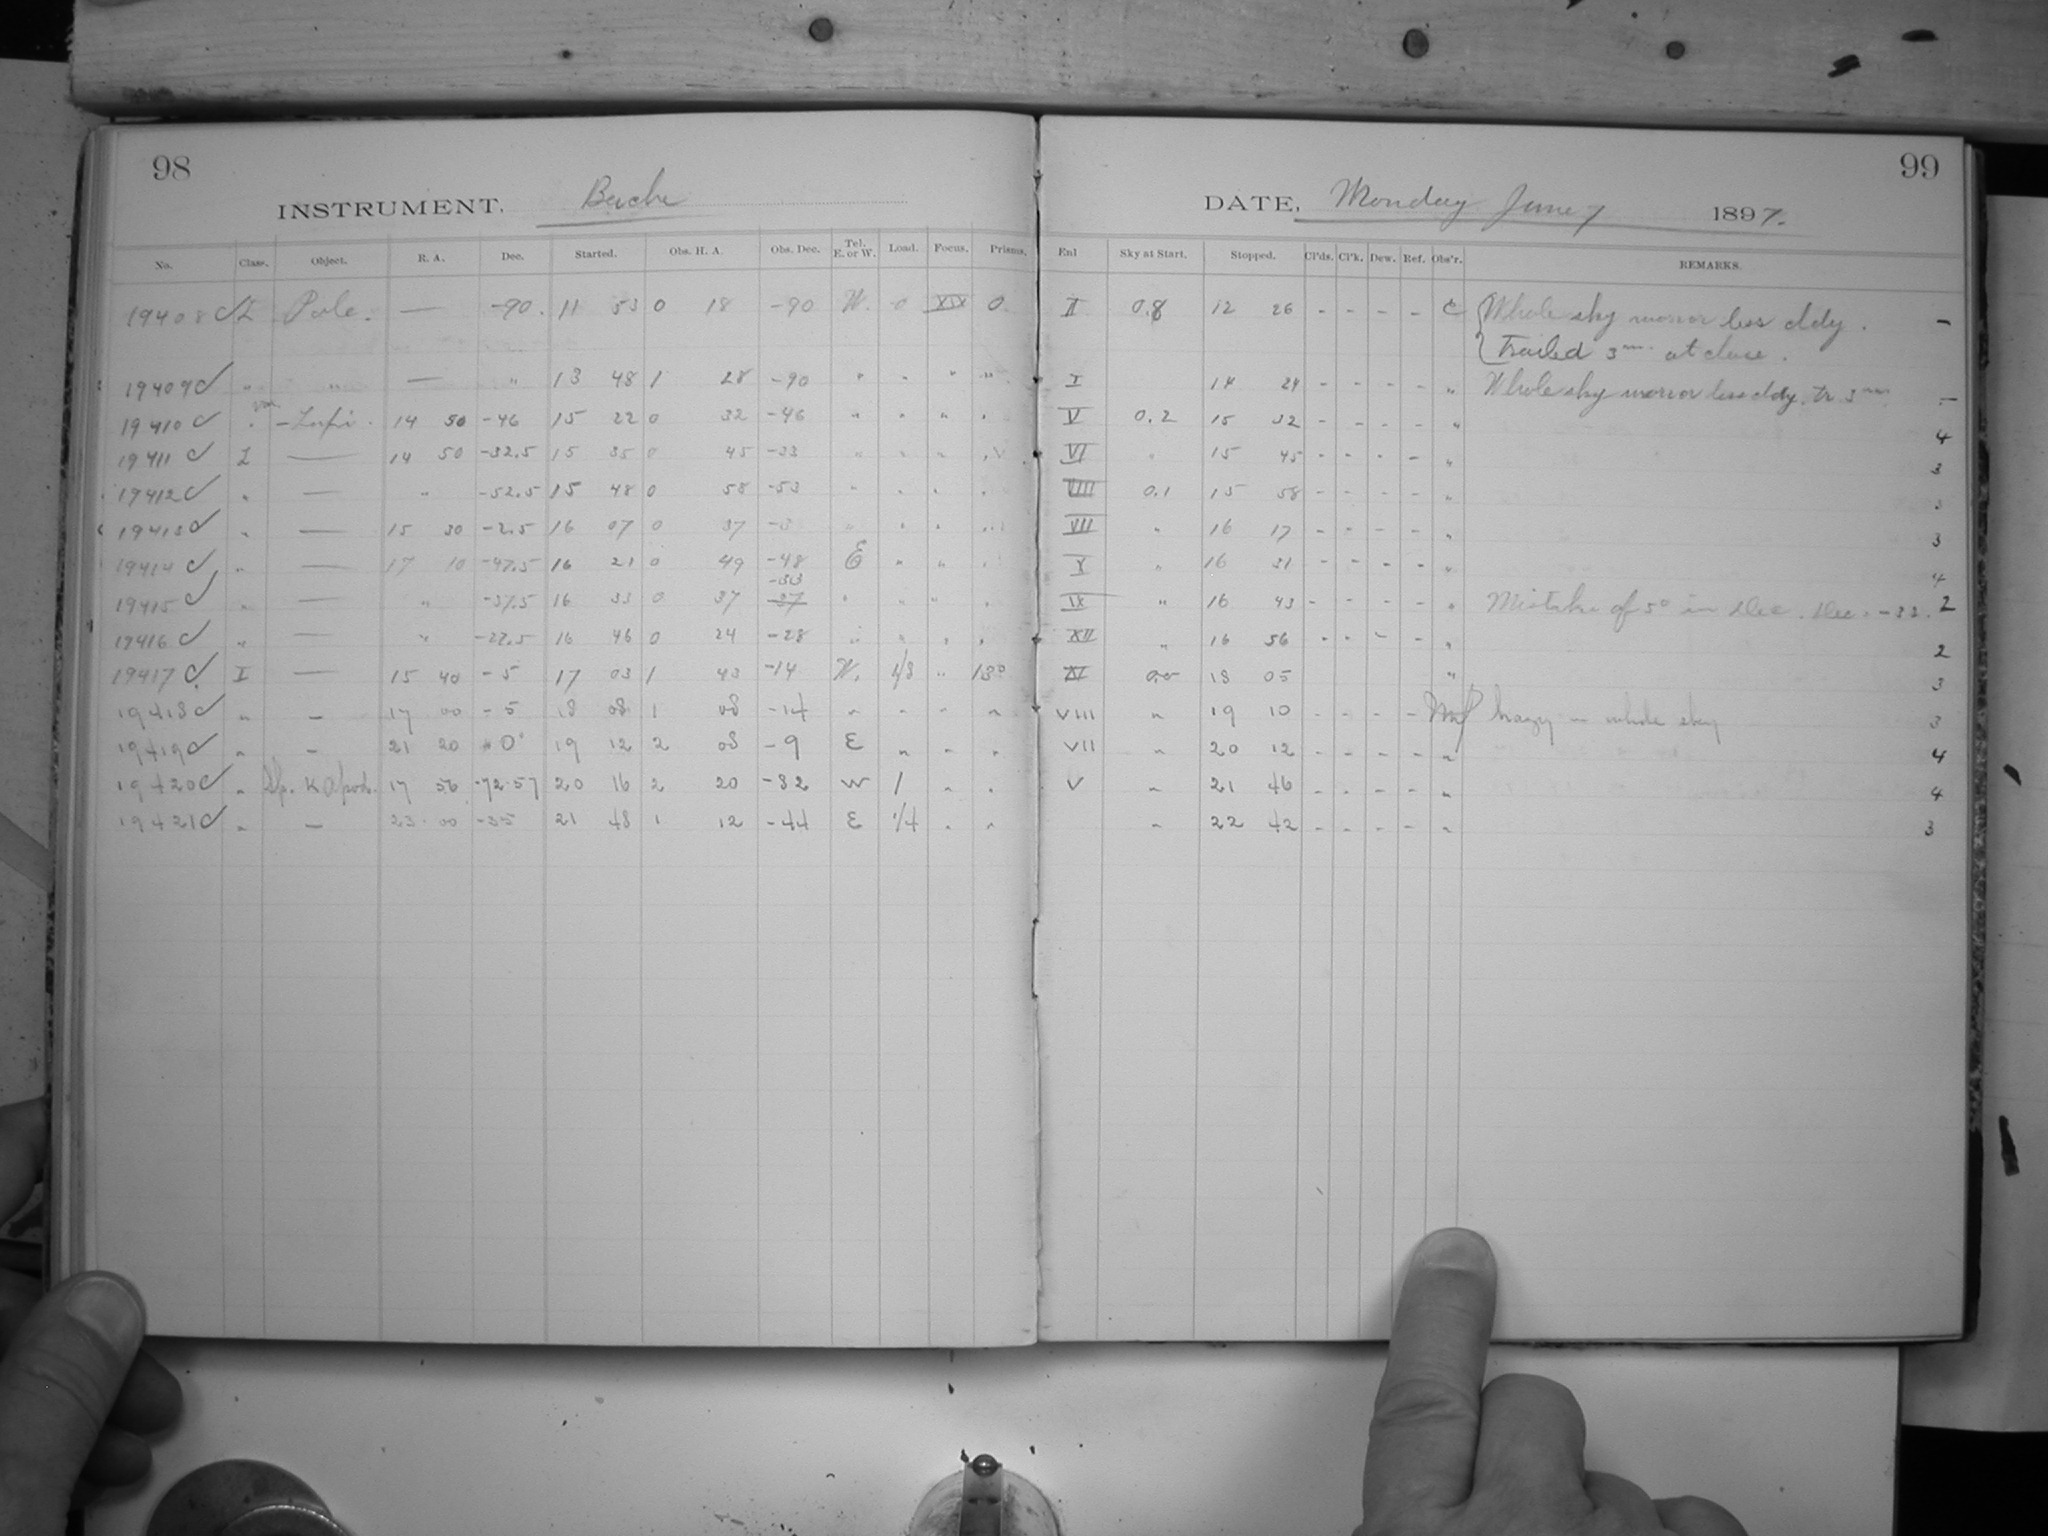 98
INSTRUMENT. Bache
No. Class. Object. R. A. Dec. Started. Obs. H. A. Obs. Dec. Tel. E. or W. Load. Focus. Prisms.
19408 L Pole. — -90. 11 53 0 18 -90 W. 0 XIX 0
19409 " " — " 13 48 1 28 -90 " " " "
19410 " var – Lupi. 14 50 -46 15 22 0 32 -46 " " " "
19411 L — 14 50 -32.5 15 35 0 45 -33 " " " "
19412 " — " -52.5 15 48 0 58 -53 " " " "
19413 " — 15 30 -2.5 16 07 0 37 -3 " " " "
19414 " — 17 10 -47.5 16 21 0 49 -48 E " " "
19415 " — " -37.5 16 33 0 37 -37 -33 " " " "
19416 " — " -27.5 16 46 0 24 -28 " " " "
19417 I — 15 40 -5 17 03 1 43 -14 W. 1/3 " 13°
19418 " — 17 00 -5 18 08 1 08 -14 " " " "
19419 " — 21 20 0° 19 12 2 08 -9 E " " "
19420 " Sp. K Apod. 17 56 -72.57 20 16 2 20 -82 W 1 " "
19421 " — 23 00 -35 21 48 1 12 -44 E 1/4 " "
99
DATE, Monday June 7 1897.
Enl Sky at Start. Stopped. Cl'ds. Cl'k. Dew. Ref. Obs'r. REMARKS.
II 0.8 12 26 - - - - C Whole sky more or less cldy. –
Trailed 3m at close.
I 14 24 - - - - " Whole sky more or less cldy. tr 3m –
V 0.2 15 32 - - - - " 4
VI " 15 45 - - - - " 3
VIII 0.1 15 58 - - - - " 3
VII " 16 17 - - - - " 3
X " 16 31 - - - - " 4
IX " 16 43 - - - - " Mistake of 5° in Dec. Dec. = -33. 2
XII " 16 56 - - - " 2
XI 0.0 18 05 " 3
VIII " 19 10 - - - - hazy in whole sky 3
VII " 20 12 - - - - " 4
V " 21 46 - - - - " 4
" 22 42 - - - - " 3